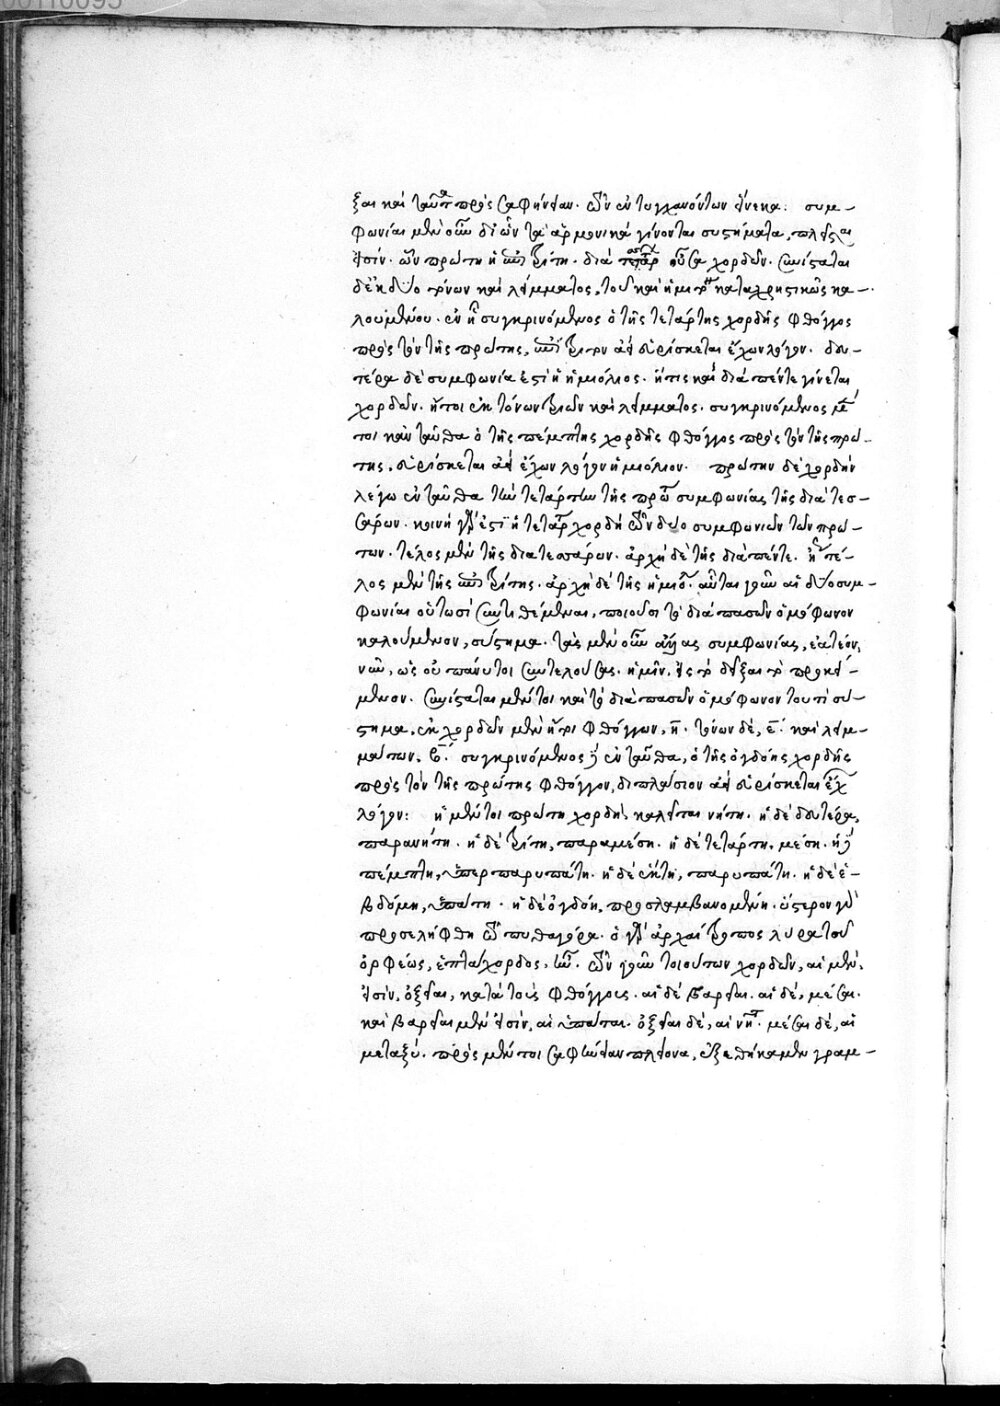 ξαι καὶ ταῦτα πρὸς σαφήνειαν τῶν ἐντυγχανόντων ἕνεκα: συμ-
φωνίαι μὲν οὖν δι' ὧν τὰ ἁρμονικὰ γίνονται συστήματα, πλείους
εἰσίν. ὧν πρώτη ἡ ἐπίτριτη. διὰ τεσσάρων οὖσα χορδῶν. συνίσταται
δὲ ἐκ δύο τόνων καὶ λείμματος, τοῦ καὶ ἡμιτονίου καταχρηστικῶς κα-
λουμένου. ἐν ᾗ συγκρινόμενος ὁ τῆς τετάρτης χορδῆς φθόγγος
πρὸς τὸν τῆς πρώτης, ἐπίτριτον ἀεὶ εὑρίσκεται ἔχων λόγον. δευ-
τέρα δὲ συμφωνία ἐστὶ ἡ ἡμιόλιος. ἥτις καὶ διὰ πέντε γίνεται
χορδῶν. ἤτοι ἐκ τόνων τριῶν καὶ λείμματος. συγκρινόμενος μέν-
τοι κἀνταῦθα ὁ τῆς πέμπτης χορδῆς φθόγγος πρὸς τὸν τῆς πρώ-
της, εὑρίσκεται ἀεὶ ἔχων λόγον ἡμιόλιον. πρώτην δὲ χορδὴν
λέγω ἐνταῦθα τὴν τετάρτην τῆς πρώτης συμφωνίας τῆς διὰ τεσ-
σάρων. κοινὴ γάρ ἐστι ἡ τετάρτη χορδὴ τῶν δύο συμφωνιῶν τῶν πρώ-
των. τέλος μὲν τῆς διὰ τεσσάρων. ἀρχὴ δὲ τῆς διὰ πέντε. ἢ τέ-
λος μὲν τῆς ἐπιτρίτης. ἀρχὴ δὲ τῆς ἡμιολίου. αὗται γοῦν αἱ δύο συμ-
φωνίαι οὑτωσὶ συντιθέμεναι, ποιοῦσι τὸ διὰ πασῶν ὁμόφωνον
καλούμενον, σύστημα. τὰς μὲν οὖν ἄλλας συμφωνίας, ἐατέον,
νῦν, ὡς οὐ πάνυ τοι συντελούσας, ἡμῖν, εἰς τὸ δεῖξαι τὸ προκεί-
μενον. συνίσταται μέντοι καὶ τὸ διὰ πασῶν ὁμόφωνον τουτὶ σύ-
στημα, ἐκ χορδῶν μὲν ἤτοι φθόγγων, η̄. τόνων δὲ, ε̄. καὶ λειμ-
μάτων, β̄. συγκρινόμενος γὰρ ἐνταῦθα, ὁ τῆς ὀγδόης χορδῆς
πρὸς τὸν τῆς πρώτης φθόγγον, διπλάσιον ἀεὶ εὑρίσκεται ἔχων
λόγον: ἡ μέντοι πρώτη χορδὴ, καλεῖται νήτη. ἡ δὲ δευτέρα,
παρανήτη. ἡ δὲ τρίτη, παραμέση. ἡ δὲ τετάρτη, μέση. ἡ δὲ
πέμπτη, ὑπερπαρυπάτη. ἡ δὲ ἕκτη, παρυπάτη. ἡ δὲ ἑ-
βδόμη, ὑπάτη. ἡ δὲ ὀγδόη, προσλαμβανομένη. ὕστερον γὰρ
προσελήφθη τῷ πυθαγόρα. ὁ γὰρ ἀρχαιότροπος λύρα τοῦ
ὀρφέως, ἑπτάχορδος, ἦν. τῶν γοῦν τοιούτων χορδῶν, αἱ μὲν,
εἰσὶν, ὀξεῖαι, κατὰ τοὺς φθόγγους. αἱ δὲ βαρεῖαι. αἱ δὲ, μέσαι.
καὶ βαρεῖαι μὲν εἰσὶν, αἱ ὑπάται. ὀξεῖαι δὲ, αἱ νῆται. μέσαι δὲ, αἱ
μεταξύ. πρὸς μέντοι σαφήνειαν πλείονα, ἐξεθήκαμεν γραμ-